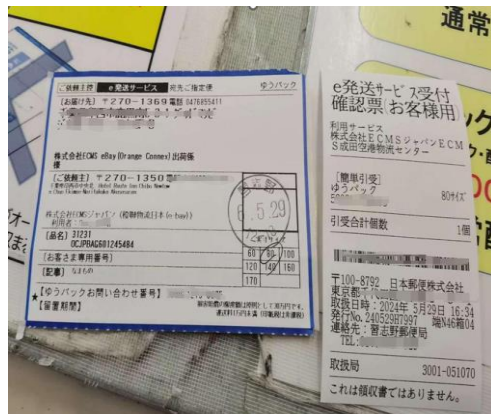 通常
ご依頼主控 e発送サービス 宛先ご指定便 ゆうパック
[お届け先] 〒270-1369 電話 0476855411
株式会社ECMS eBay(Orange Connex) 出荷係
様
[ご依頼主] 〒270-1350 電話
株式会社ECMSジャパン
[品名] 31231
OCJPRAG601245484
[お客さま専用番号]
[記事] なまもの
60 80 100
120 140 160
170
6.5.29
★【ゆうパックお問い合わせ番号】
【留置期間】
e発送サービス受付
確認票(お客様用)
利用サービス
株式会社ECMSジャパンECM
S成田空港物流センター
[簡単引受]
ゆうパック 80サイズ
引受合計個数 1個
〒100-8792 日本郵便株式会社
東京都
取扱日時:2024年 5月29日 16:34
発行No.240529H7997 端N46箱04
連絡先:習志野郵便局
TEL:
取扱局 3001-051070
これは領収書ではありません。